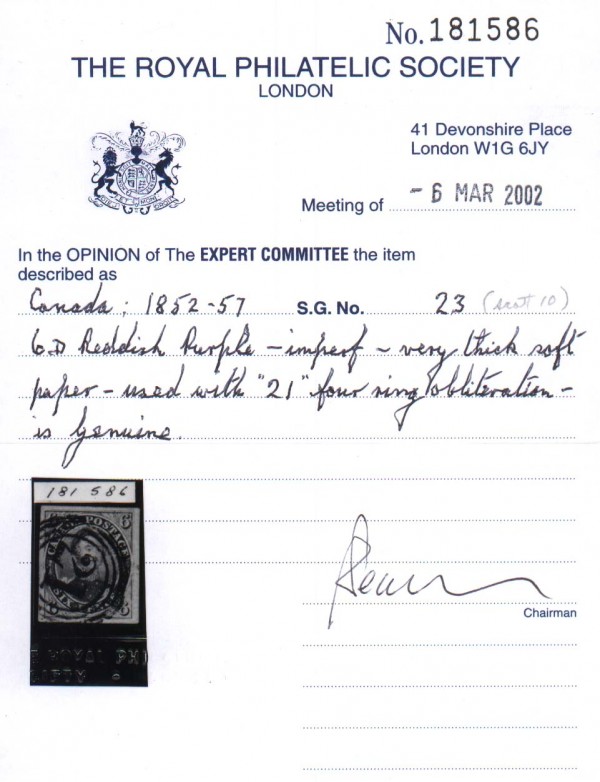 No. 181586
THE ROYAL PHILATELIC SOCIETY
LONDON
41 Devonshire Place
London W1G 6JY
Meeting of - 6 MAR 2002
In the OPINION of The EXPERT COMMITTEE the item
described as
Canada: 1852-57 S.G. No. 23 (Scott 10)
6.D Reddish Purple - imperf - very thick soft
paper - used with "21" four ring obliteration -
is Genuine.
181 586
6 CANADA POSTAGE 6
SIX PENCE 6
E ROYAL PHI
Chairman